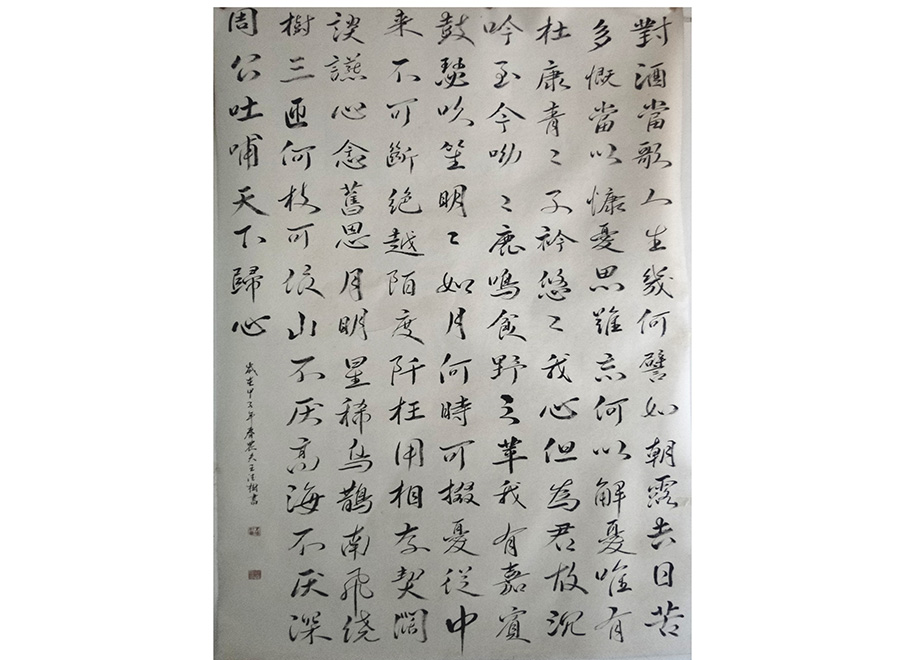 對酒當歌人生幾何譬如朝露去日苦
多慨當以慷憂思難忘何以解憂唯有
杜康青〻子衿悠〻我心但為君故沉
吟至今呦〻鹿鳴食野之苹我有嘉賓
鼓瑟吹笙明〻如月何時可掇憂從中
来不可斷絶越陌度阡枉用相存契闊
談讌心念舊恩月明星稀烏鵲南飛绕
樹三匝何枝可依山不厌高海不厌深
周公吐哺天下歸心
歲在甲午年春農夫王法樹書